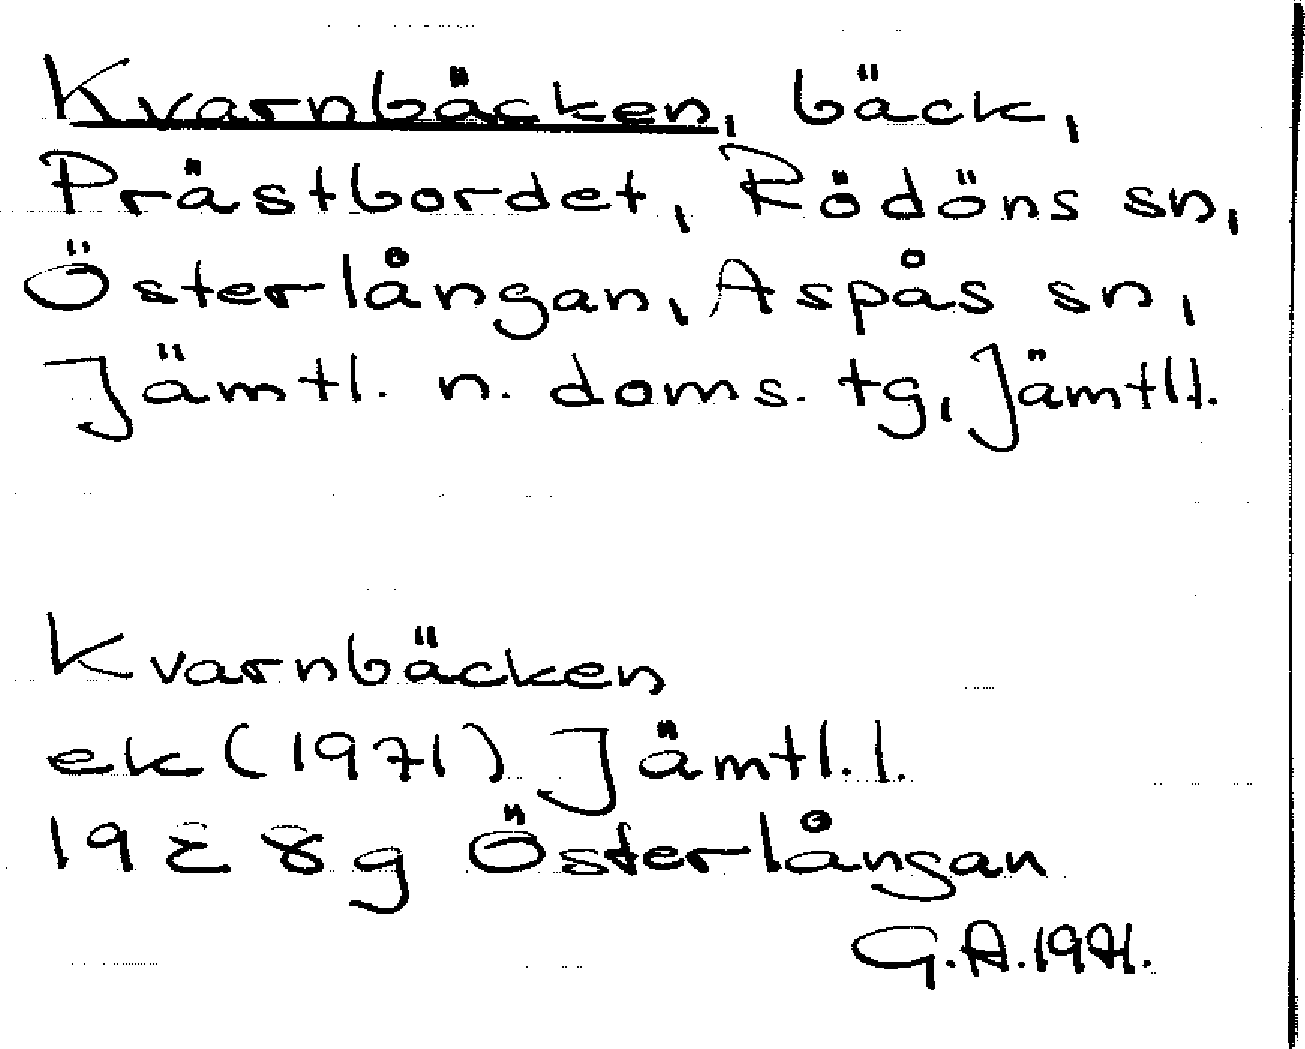 Kvarnbäcken, bäck,
Prästbordet, Rödöns sn,
Österlångan, Aspås sn,
Jämtl. n. doms. tg, Jämtl l.
Kvarnbäcken
ek (1971) Jämtl. l.
19 Σ 8 g Österlångan
G.A. 1971.